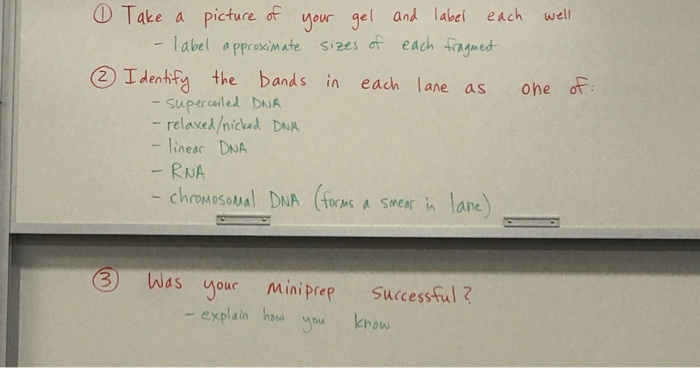 ① Take a picture of your gel and label each well
- label approximate sizes of each fragment
② Identify the bands in each lane as one of:
- supercoiled DNA
- relaxed/nicked DNA
- linear DNA
- RNA
- chromosomal DNA (forms a smear in lane)
③ Was your miniprep successful?
- explain how you know